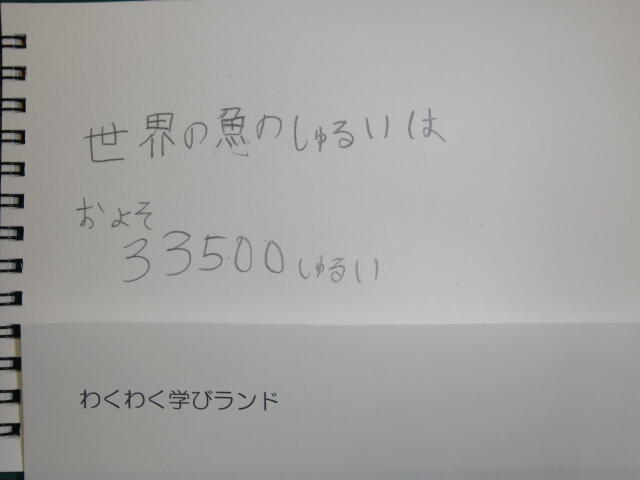 世界の魚のしゅるいは
およそ
33500しゅるい
わくわく学びランド